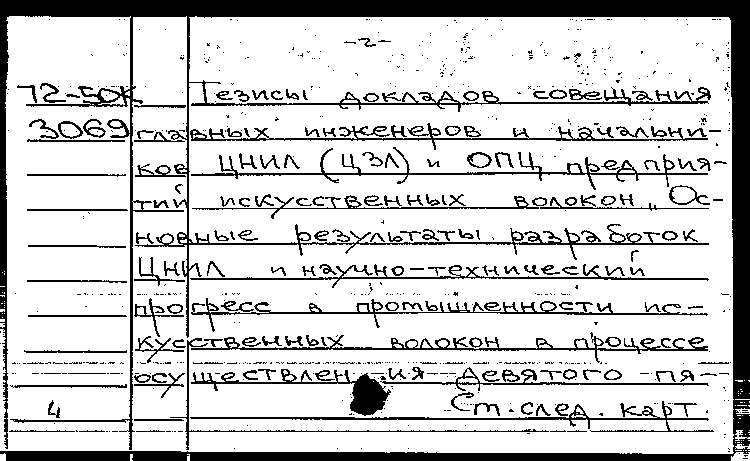 -2-
72-50К Тезисы докладов совещания
3069 главных инженеров и начальни-
ков ЦНИЛ (ЦЗЛ) и ОПЦ предприя-
тий искусственных волокон „Ос-
новные результаты разработок
ЦНИЛ и научно-технический
прогресс в промышленности ис-
кусственных волокон в процессе
осуществления девятого пя-
4 См. след. карт.